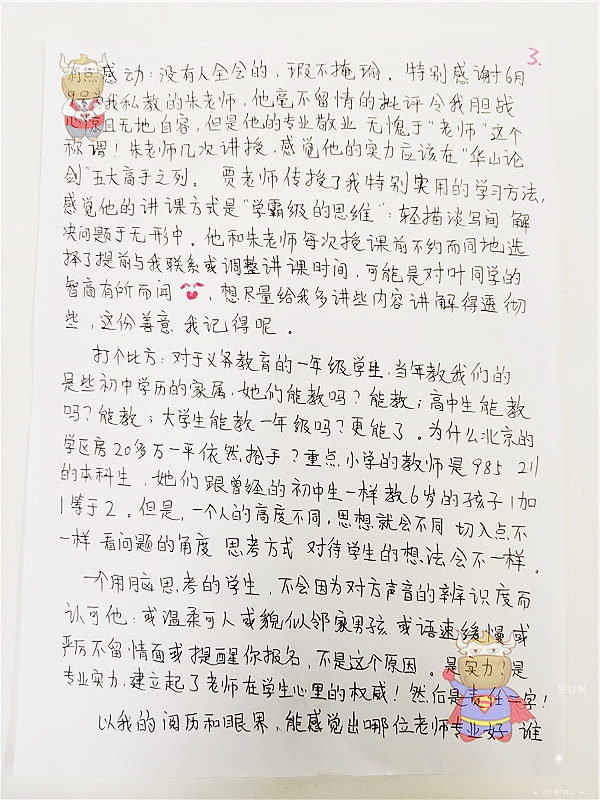 3.
有点感动：没有人全会的，瑕不掩瑜。特别感谢6月
9号为我私教的朱老师，他毫不留情的批评令我胆战
心惊且无地自容，但是他的专业敬业 无愧于“老师”这个
称谓！朱老师几次讲授，感觉他的实力应该在“华山论
剑”五大高手之列。 贾老师传授了我特别实用的学习方法，
感觉他的讲课方式是“学霸级的思维”：轻描淡写间 解
决问题于无形中。他和朱老师每次授课前不约而同地选
择了提前与我联系或调整讲课时间，可能是对叶同学的
智商有所而闻 ，想尽量给我多讲些内容讲解得透彻
些，这份善意 我记得呢。
打个比方：对于义务教育的一年级学生，当年教我们的
是些初中学历的家属，她们能教吗？能教；高中生能教
吗？能教；大学生能教一年级吗？更能了。为什么北京的
学区房20多万一平依然抢手？重点小学的教师是985 211
的本科生，她们跟曾经的初中生一样教6岁的孩子1加
1等于2。但是，一个人的高度不同，思想就会不同 切入点不
一样 看问题的角度 思考方式 对待学生的想法会不一样。
一个用脑思考的学生，不会因为对方声音的辨识度而
认可他：或温柔可人 或貌似邻家男孩 或语速缓慢 或
严厉不留情面或提醒你报名，不是这个原因。是实力！是
专业实力，建立起了老师在学生心里的权威！然后是责任二字！
以我的阅历和眼界，能感觉出哪位老师专业好 谁
SUN